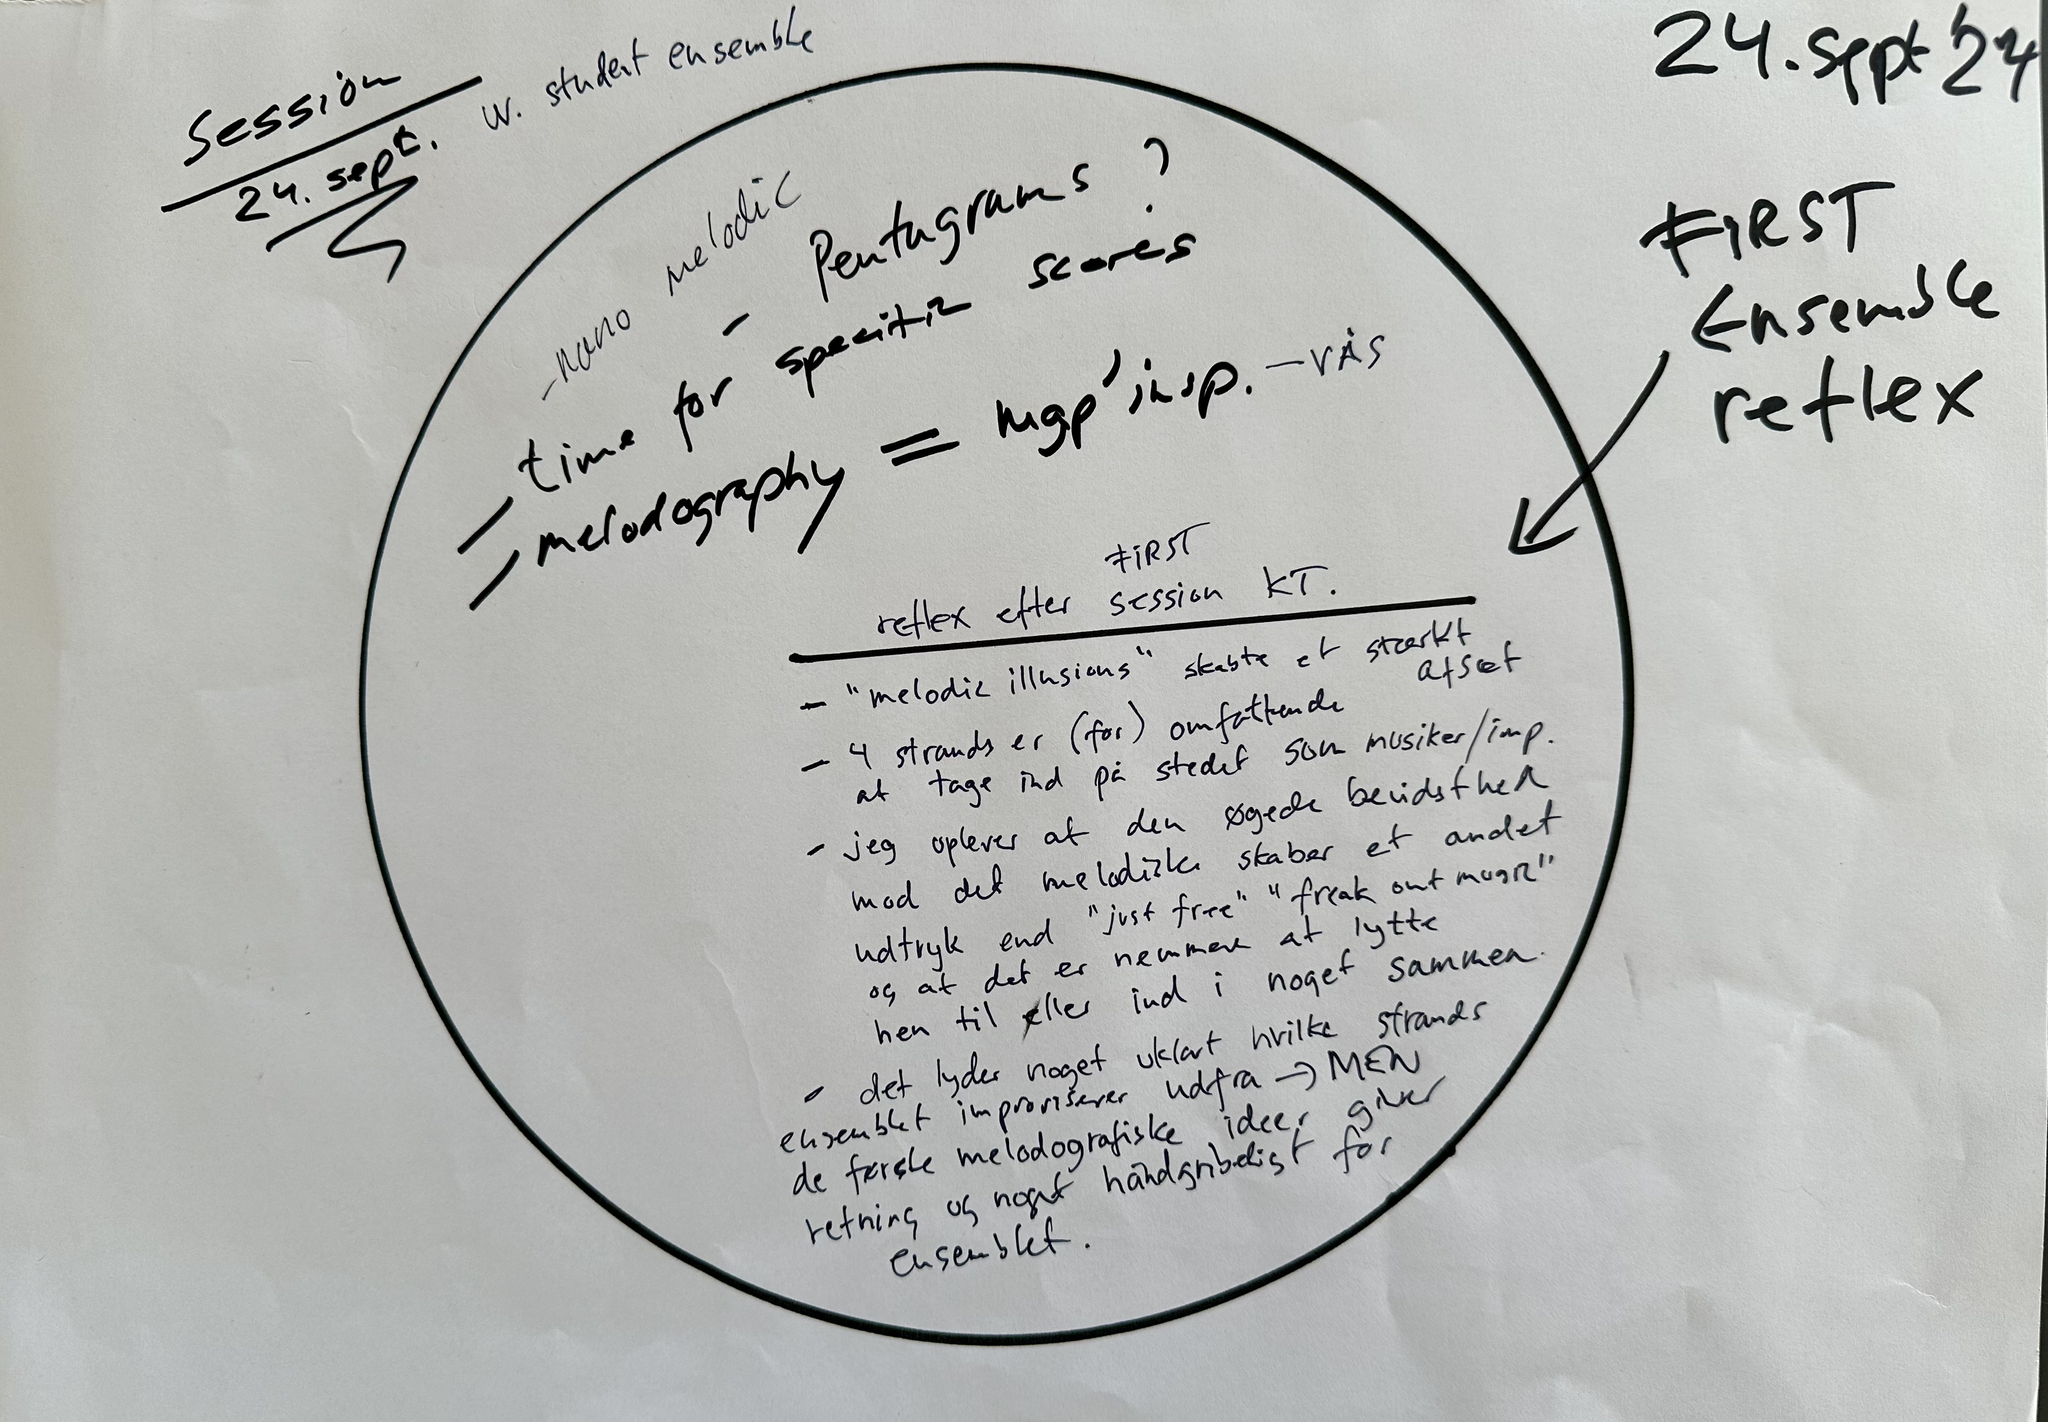 Session
24. sept. w. student ensemble
24. sept '24
FiRST
Ensemble
reflex
- nano melodic
- Pentagrams?
- time for specific scores
- melodography = mgp' insp. - VÅS
FiRST
reflex efter session KT.
- "melodic illusions" skabte et stærkt
afsæt
- 4 strands er (for) omfattende
at tage ind på stedet som musiker/imp.
- jeg oplever at den øgede bevidsthed
mod det melodiske skaber et andet
udtryk end "just free" "freak out
og at det er nemmere at lytte
hen til eller ind i noget sammen.
- det lyder noget uklart hvilke strands
ensemblet improviserer udfra → MEN
de første melodografiske ideer giver
retning og noget håndgribeligt for
ensemblet.